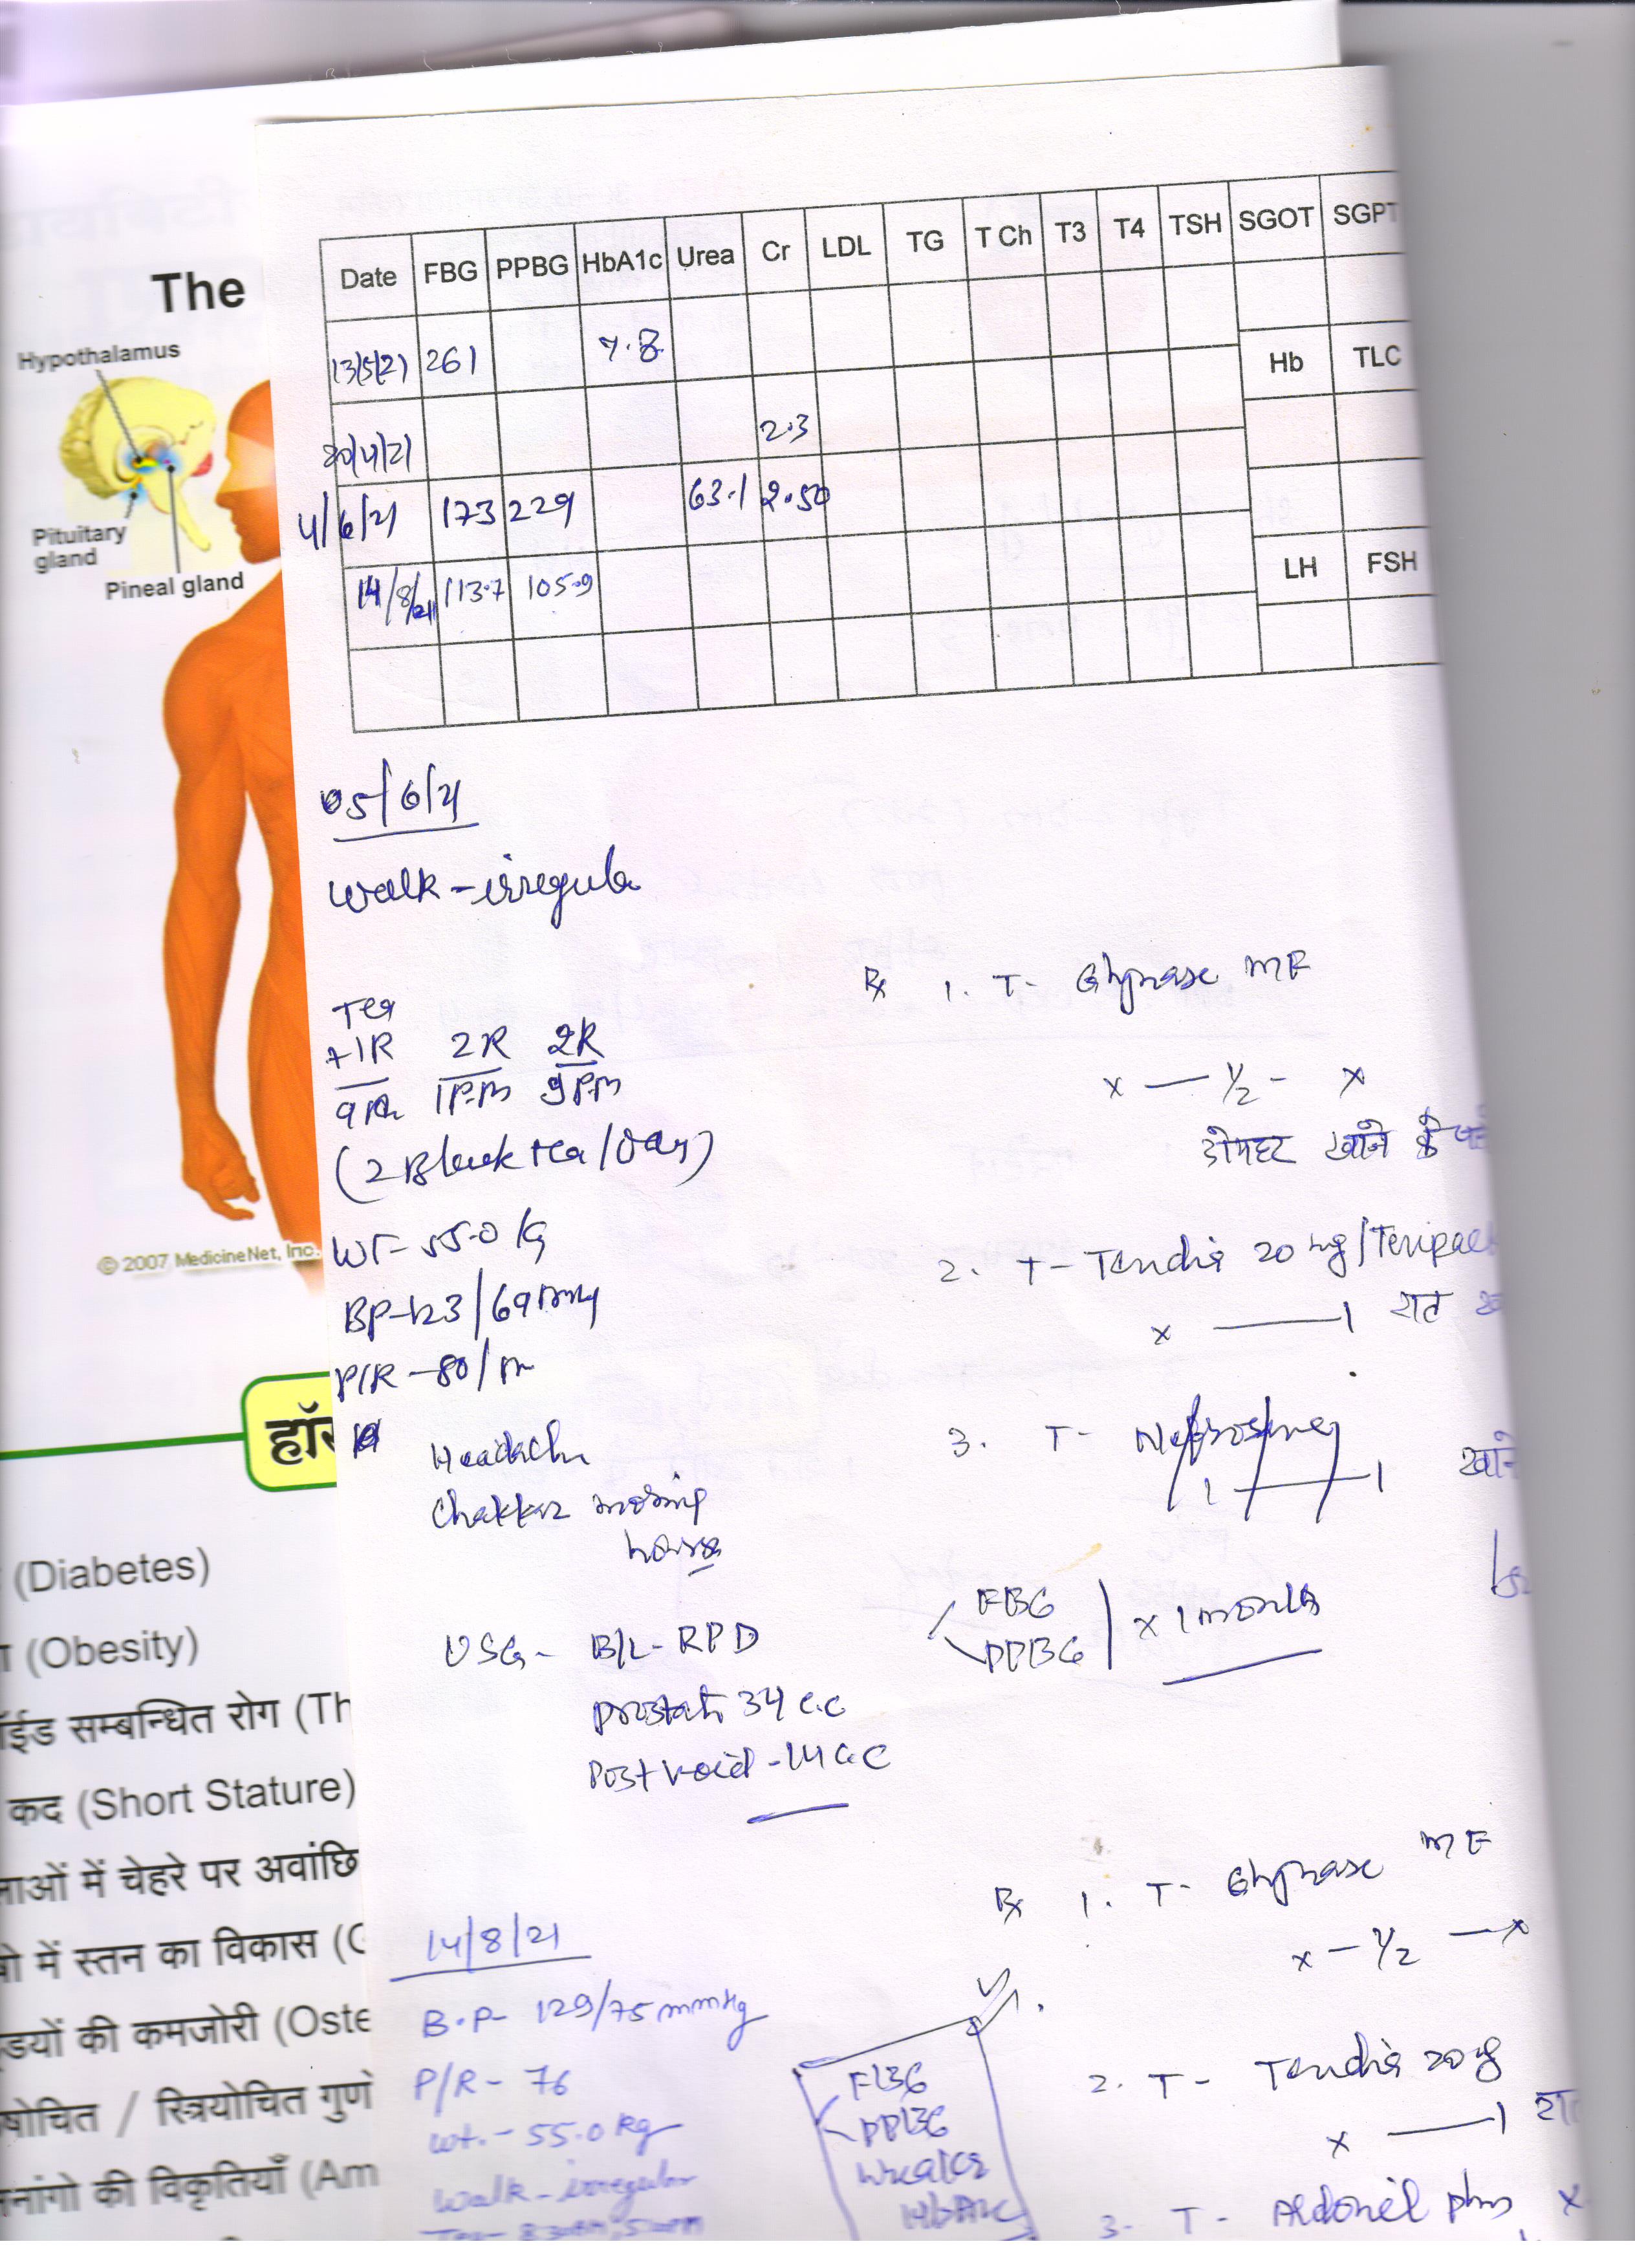 The
Hypothalamus
Pituitary
gland
Pineal gland
© 2007 MedicineNet, Inc.
हॉर
(Diabetes)
(Obesity)
ॉईड सम्बन्धित रोग (Th
कद (Short Stature)
लाओं में चेहरे पर अवांछि
में स्तन का विकास (G
डयों की कमजोरी (Oste
षोचित / स्त्रियोचित गुणे
नांगो की विकृतियाँ (Am
Date FBG PPBG HbA1c Urea Cr LDL TG T Ch T3 T4 TSH SGOT SGPT
13/5/21 261 7.8
Hb TLC
20/4/21 2.3
4/6/21 173 229 63.1 2.50
LH FSH
14/8/21 113.7 105.9
05/6/21
Walk - irregular
Tea
+1R 2R 2R
9 1P.m 9 P.m
(2 Black tea/Day)
WT- 55.0 kg
BP-123/69 mmHg
P/R - 80/m
Headache
Chakkar morning
hours
USG - B/L - RPD
Prostate 34 c.c
Post void - 14 c.c
Rx 1. T- Glynase MF
x — 1/2 - x
दोपहर खाने के
2. T- Tendia 20 mg/
x — 1 रात
3. T-
1 — 1 खाने
FBG
PPBG x 1 month
14/8/21
B.P- 129/75 mmHg
P/R - 76
wt. - 55.0 kg
Walk - irregular
FBG
PPBG
HbA1c
Rx 1. T- Glynase MF
x - 1/2 - x
2. T- Tendia 20
x — 1
3. T-